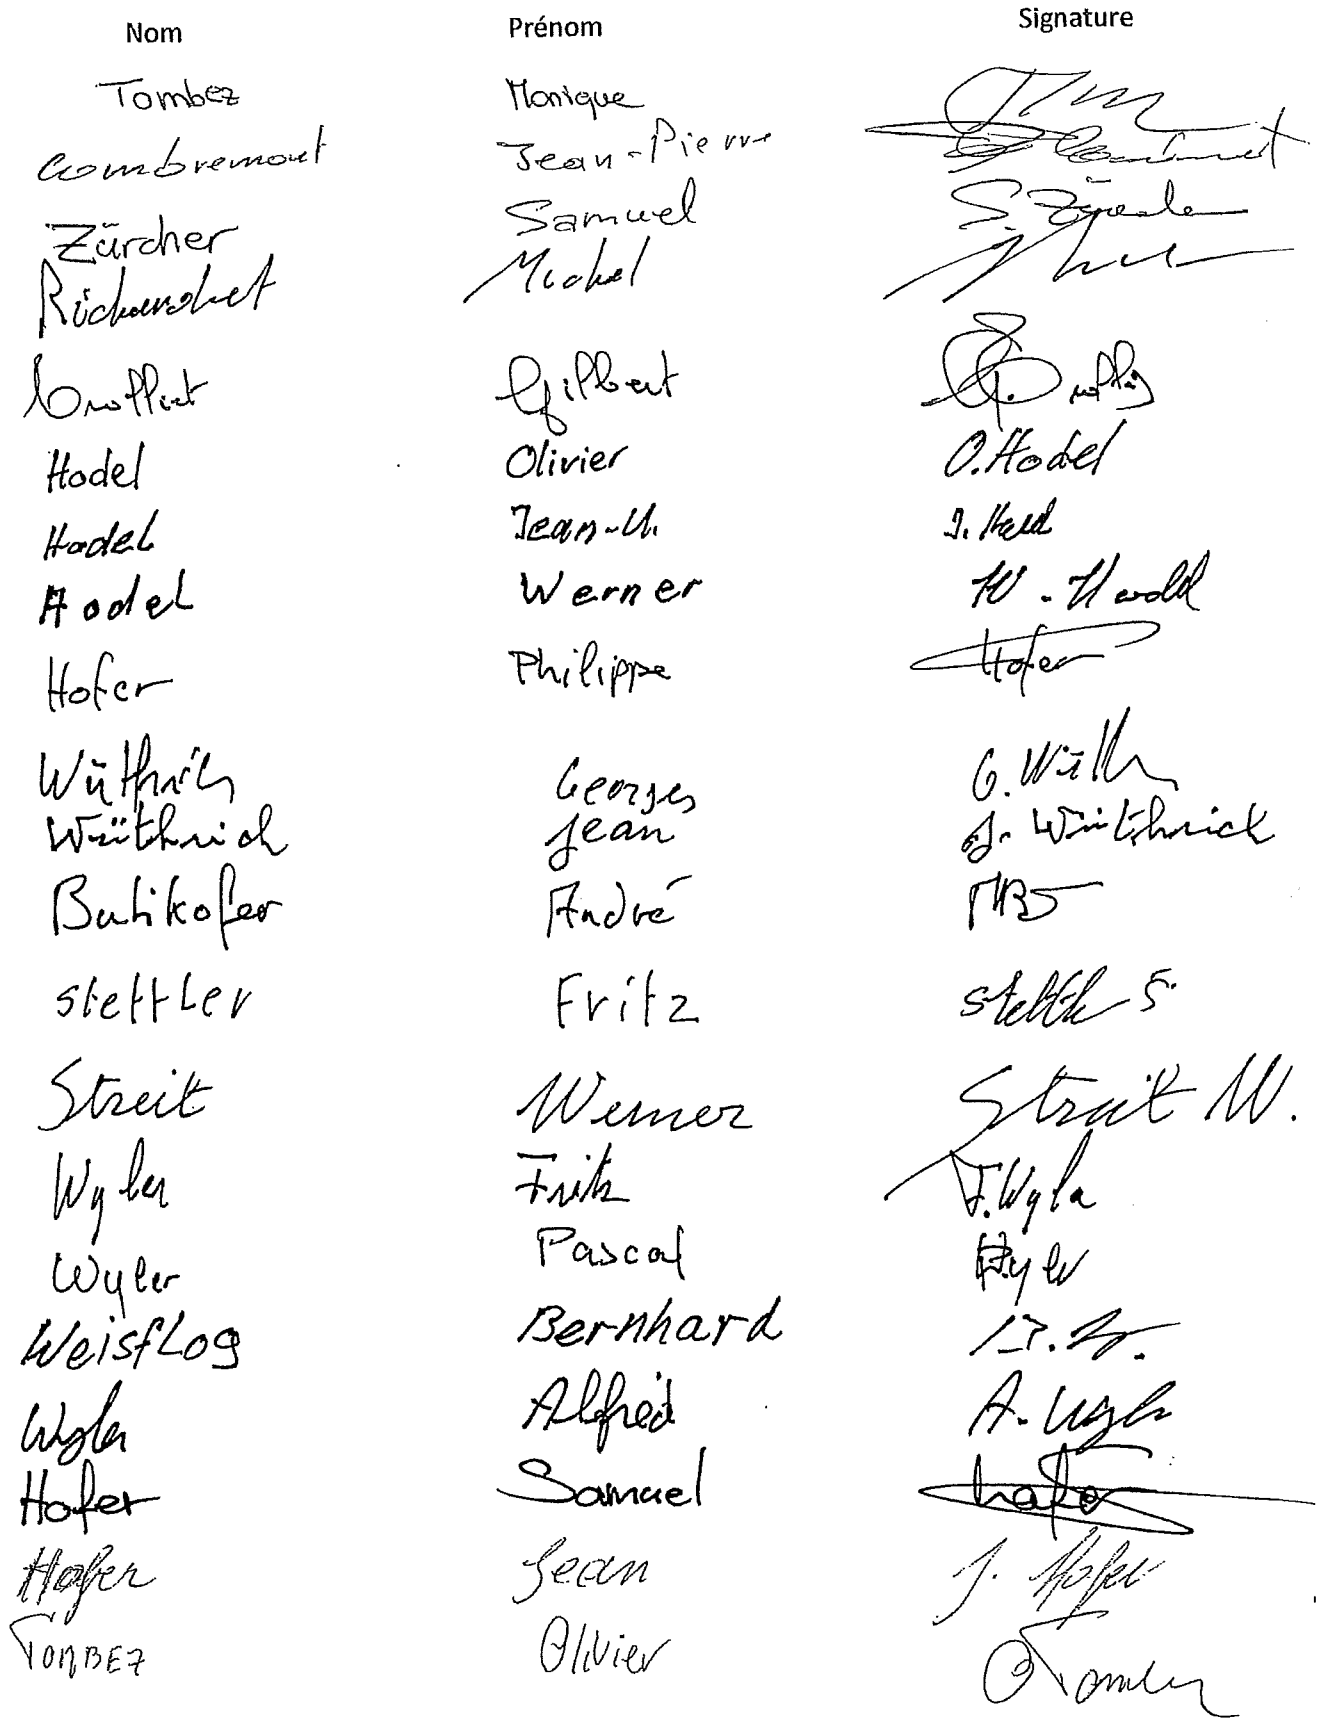 Nom Prénom Signature
Tombez Monique
Combremont Jean-Pierre
Zürcher Samuel S. Zürcher
Michel
Gilbert
Hodel Olivier O. Hodel
Hodel Jean-U. J. Hodel
Hodel Werner W. Hodel
Hofer Philippe Hofer
Wüthrich Georges G. Wüth
Wüthrich Jean J. Wüthrich
Butikofer André
Stettler Fritz Stettler F.
Streit Werner Streit W.
Wyler Fritz F. Wyler
Wyler Pascal P. Wyler
Weisflog Bernhard
Wyler Alfred A. Wyler
Hofer Samuel Hofer
Hofer Jean J. Hofer
TOMBEZ Olivier O Tombez